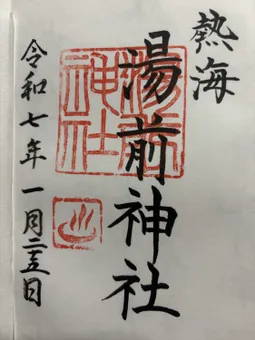 熱海
湯前神社
令和七年一月二十五日
湯前神社